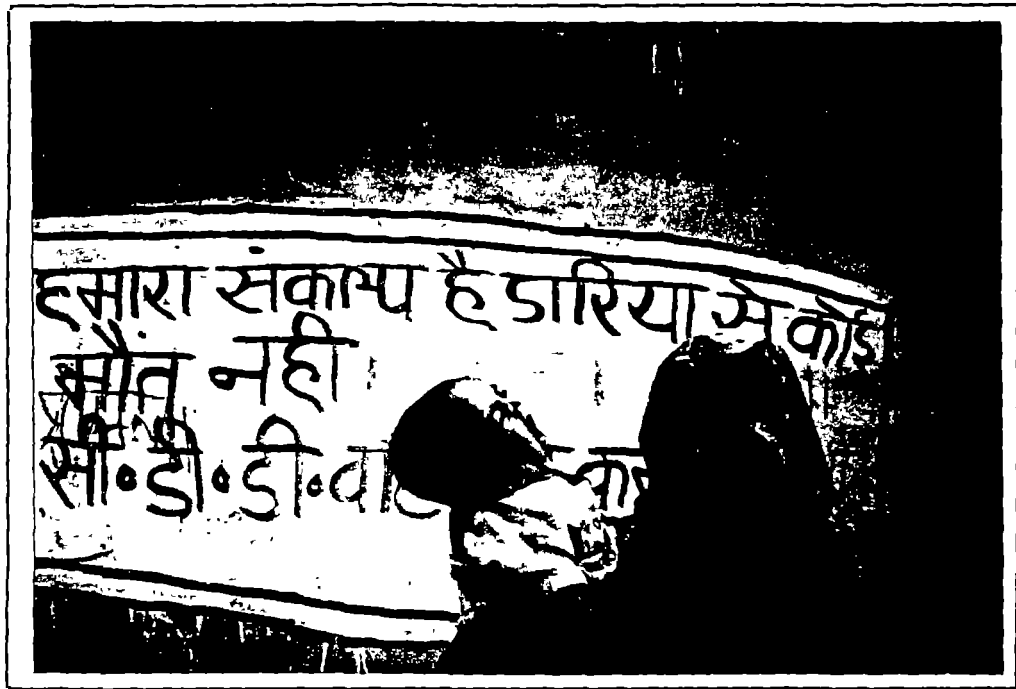 हमारा संकल्प है डारिया से कोई
मौत नही
सी॰डी॰डी॰